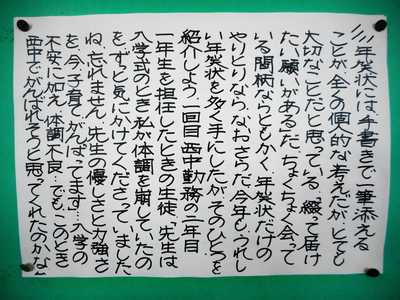 年賀状には、手書きで一筆添える
ことが、余の個人的な考えだが、とても
大切なことだと思っている。「綴って届け
たい願いがある」だ。ちょくちょく会って
いる間柄ならともかく、年賀状だけの
やりとりなら、なおさらだ。今年も、うれし
い年賀状を多く手にしたが、そのひとつを
紹介しよう。一回目西中勤務の二年目、
一年生を担任したときの生徒。「先生は
入学式のとき、私が体調を崩していたの
を、ずっと気にかけてくださっていました
ね。忘れません。先生の優しさと力強さ
を。今、子育てがんばってます…」入学の
不安に加え、体調不良…。でも、このとき
西中で、がんばれそうと思ってくれたのかな